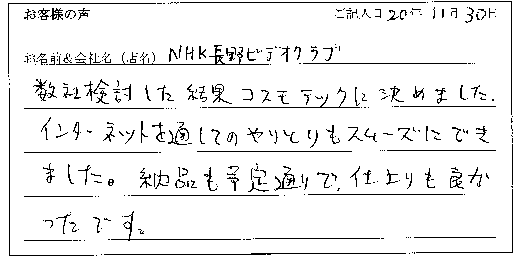 お客様の声 ご記入日 20年 11月 30日
お名前&会社名（店名） NHK長野ビデオクラブ
数社検討した結果コスモテックに決めました.
インターネットを通してのやりとりもスムーズにでき
ました。納品も予定通りで、仕上りも良か
ったです。